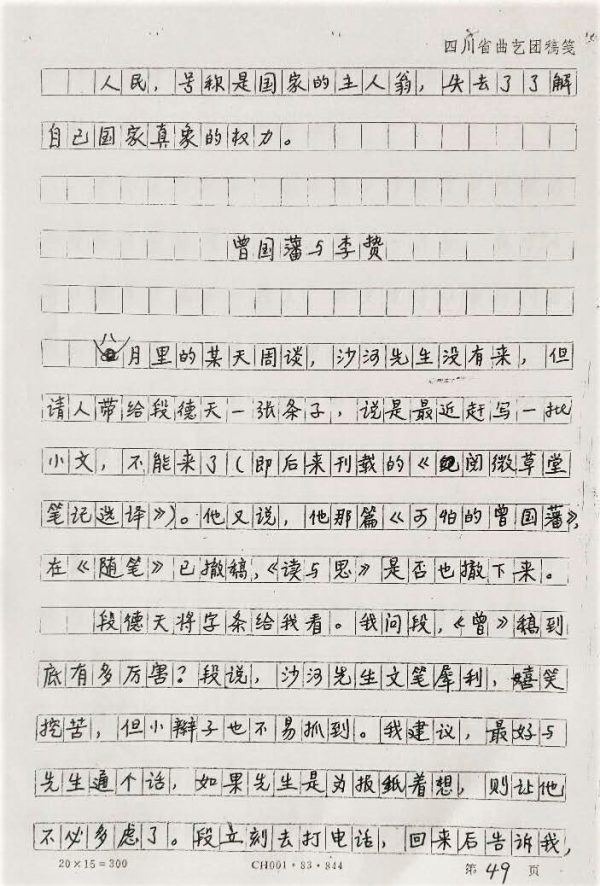 四川省曲艺团稿笺
人民，号称是国家的主人翁，失去了了解
自己国家真象的权力。
曾国藩与李贽
八月里的某天周谈，沙河先生没有来，但
请人带给段德天一张条子，说是最近赶写一批
小文，不能来了（即后来刊载的《阅微草堂
笔记选译》）。他又说，他那篇《可怕的曾国藩》，
在《随笔》已撤稿，《读与思》是否也撤下来。
段德天将字条给我看。我问段，《曾》稿到
底有多厉害？段说，沙河先生文笔犀利，嬉笑
挖苦，但小辫子也不易抓到。我建议，最好与
先生通个话，如果先生是为报纸着想，则让他
不必多虑了。段立刻去打电话，回来后告诉我，
20×15=300 CH001·83·844 第49页